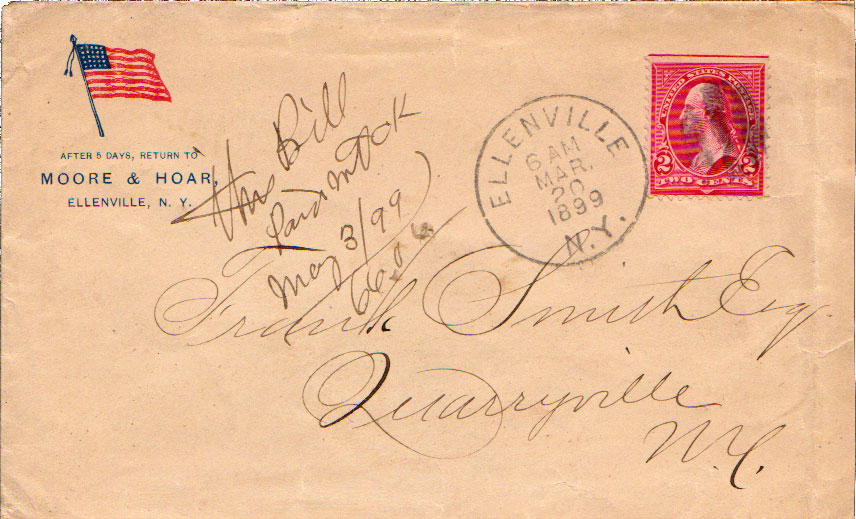 AFTER 5 DAYS, RETURN TO
MOORE & HOAR,
ELLENVILLE, N. Y.
This Bill
Paid
May 3/99
ELLENVILLE
6 AM
MAR.
20
1899
N.Y.
UNITED STATES POSTAGE
2 2
TWO CENTS
Frank Smith Esq.
Quarryville
N.Y.